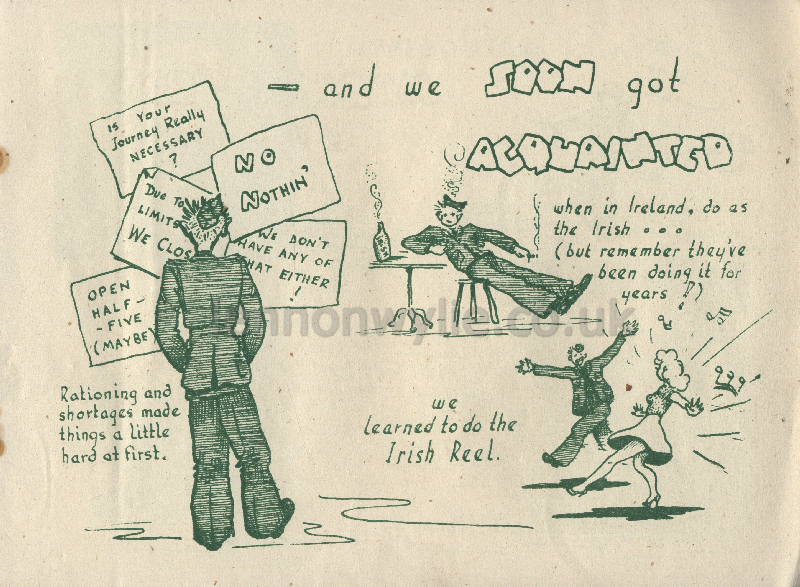 — and we SOON got
ACQUAINTED
Is Your
Journey Really
NECESSARY
?
NO
NOTHIN'
Due To
LIMITS
WE CLOS
WE DON'T
HAVE ANY OF
THAT EITHER
!
OPEN
HALF-
-FIVE
(MAYBE)
when in Ireland, do as
the Irish ...
(but remember they've
been doing it for
years !?)
Rationing and
shortages made
things a little
hard at first.
we
learned to do the
Irish Reel.
lennonwylie.co.uk